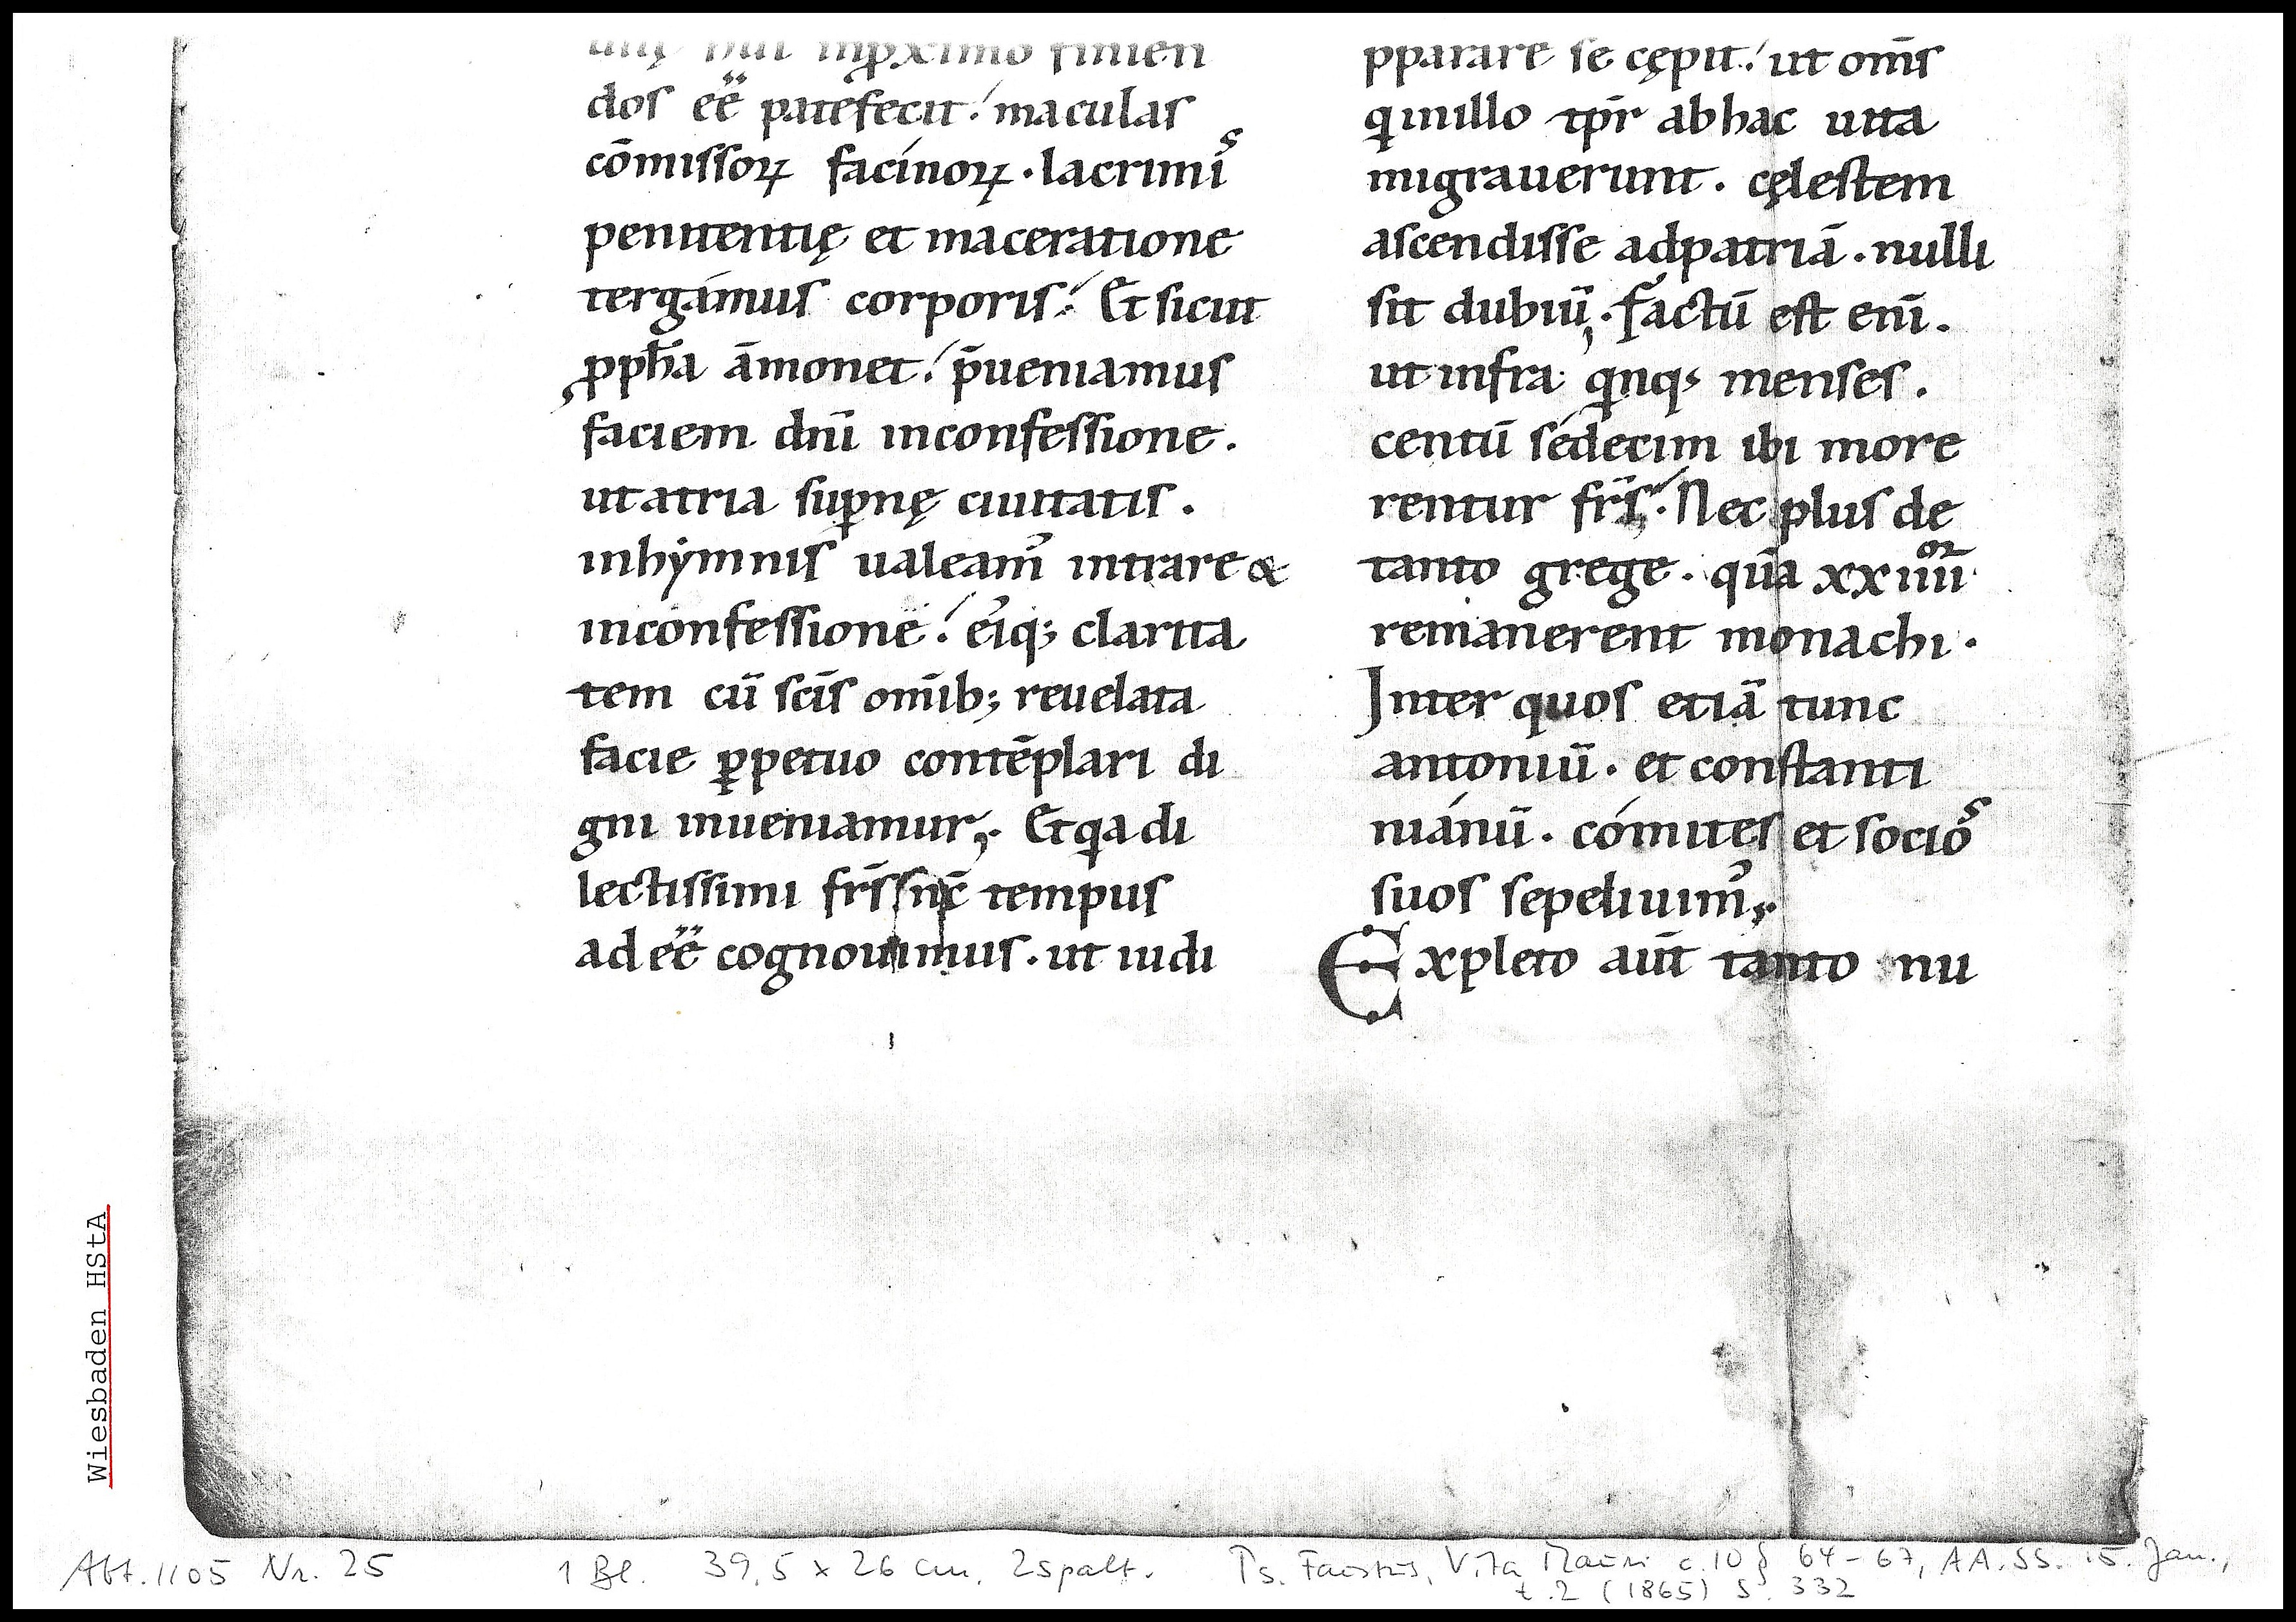 uitę huі inꝓximo finien
dos eē patefecit. maculas
cōmissoꝝ facinoꝝ. lacrimiˢ
penitentię et maceratione
tergámus corporis. Et sicut
ꝓph̄a āmonet. p̄ueniamus
faciem dn̄i inconfessione.
ut atria suꝑnę ciuitatis.
inhẏmnis ualeam᾿ intrare &
inconfessione. ei᾿q; clarita
tem cū scīs om̄ib; reuelata
facie ꝑpetuo contēplari di
gni inueniamur; Et qa di
lectissimi fr̄s nc̄ tempus
adeē cognouimus. ut iudi
pparare se cępit. ut om̄s
qinillo tp̄r abhac uita
migrauerunt. cęlestem
ascendisse adpatriā. nulli
sit dubiū; Factū est eni̅.
ut infra qnq; menses.
centū sédecim ibi more
rentur fr̄s; Nec plus de
tanto grege. quā xxiiiiᵒʳ
remanerent monachi.
Inter quos etiā tunc
antoniū. et constanti
niánū. cómites et socioˢ
suos sepeliuim᾿;
Expleto aut̄ tanto nu
Wiesbaden HStA
Abt. 1105 Nr. 25 1 Bl. 39,5 x 26 cm, 2spalt. Ps. Faustus, Vita Mauri c.10 § 64-67, AA.SS. 15. Jan.,
t.2 (1865) S. 332